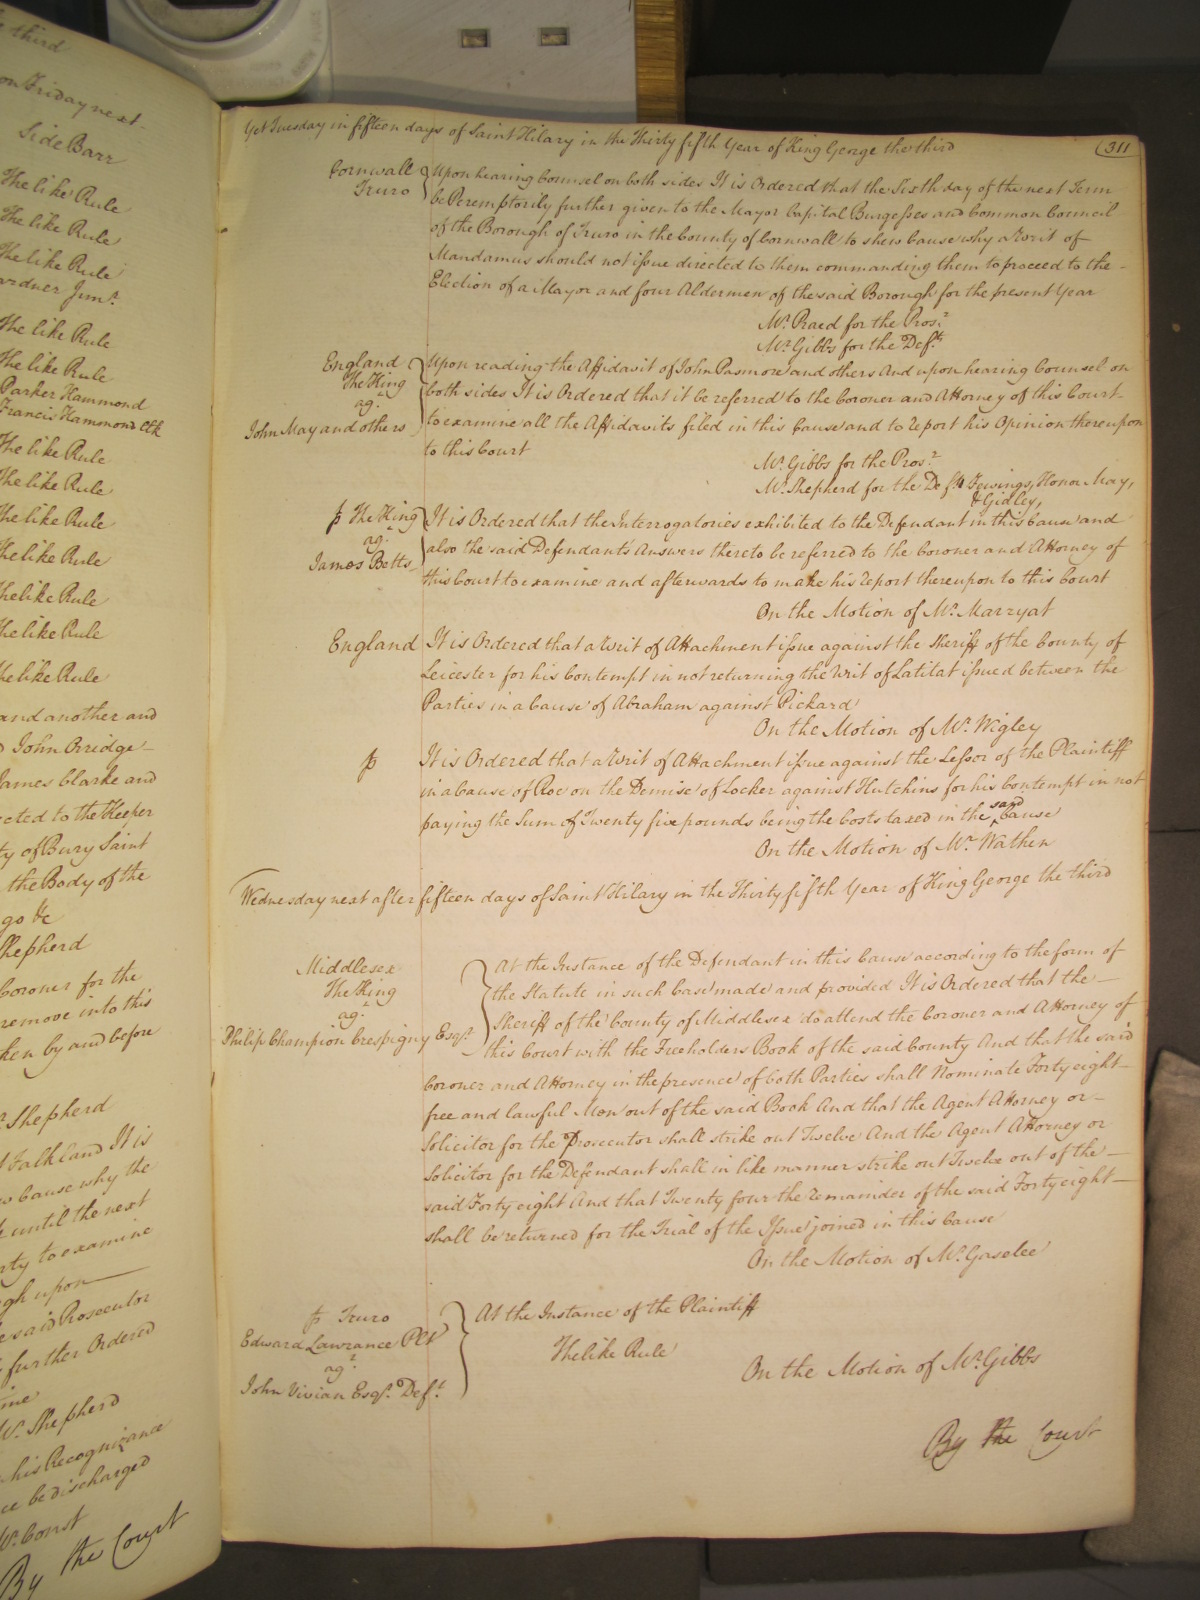 e third
on Friday next
Side Barr
The like Rule
The like Rule
The like Rule
ardner Junr.
The like Rule
The like Rule
Parker Hammond
Francis Hammond Clk
The like Rule
The like Rule
The like Rule
The like Rule
The like Rule
The like Rule
The like Rule
and another and
John Orridge
James Clarke and
ected to the Keeper
ty of Bury Saint
the Body of the
go &c
Shepherd
Coroner for the
remove into this
ken by and before
Shepherd
Falkland It is
w Cause why the
until the next
rty to examine
gh upon
e said Prosecutor
further Ordered
ime
Mr. Shepherd
his Recognizance
ce be discharged
Mr. Const
By the Court
Yet Tuesday in fifteen days of Saint Hilary in the Thirty fifth Year of King George the third
311
Cornwall
Truro
Upon hearing Counsel on both sides It is Ordered that the Sixth day of the next Term
be Peremptorily further given to the Mayor Capital Burgesses and Common Council
of the Borough of Truro in the County of Cornwall to shew Cause why a Writ of
Mandamus should not issue directed to them commanding them to proceed to the
Election of a Mayor and four Aldermen of the said Borough for the present Year
Mr. Praed for the Prosr.
Mr. Gibbs for the Defts.
England
The King
agt.
John May and others
Upon reading the Affidavit of John Pasmore and others And upon hearing Counsel on
both sides It is Ordered that it be referred to the Coroner and Attorney of this Court
to examine all the Affidavits filed in this Cause and to Report his Opinion thereupon
to this Court
Mr. Gibbs for the Prosr.
Mr. Shepherd for the Defts Jewings, Honor May,
& Gidley,
þ The King
agt.
James Betts
It is Ordered that the Interrogatories exhibited to the Defendant in this Cause and
also the said Defendant's Answers thereto be referred to the Coroner and Attorney of
this Court to examine and afterwards to make his Report thereupon to this Court
On the Motion of Mr. Marryat
England
It is Ordered that a Writ of Attachment issue against the Sheriff of the County of
Leicester for his Contempt in not returning the Writ of Latitat issued between the
Parties in a Cause of Abraham against Pickard
On the Motion of Mr. Wigley
þ
It is Ordered that a Writ of Attachment issue against the Lessor of the Plaintiff
in a Cause of Roe on the Demise of Locker against Hutchins for his Contempt in not
paying the Sum of Twenty five pounds being the Costs taxed in the said Cause
On the Motion of Mr. Wathen
Wednesday next after fifteen days of Saint Hilary in the Thirty fifth Year of King George the third
Middlesex
The King
agt.
Philip Champion Crespigny Esqr.
At the Instance of the Defendant in this Cause according to the form of
the Statute in such Case made and provided It is Ordered that the
Sheriff of the County of Middlesex do attend the Coroner and Attorney of
this Court with the Freeholders Book of the said County And that the said
Coroner and Attorney in the presence of both Parties shall Nominate Forty eight
free and lawful Men out of the said Book And that the Agent Attorney or
Solicitor for the Prosecutor shall strike out Twelve And the Agent Attorney or
Solicitor for the Defendant shall in like manner strike out Twelve out of the
said Forty eight And that Twenty four the remainder of the said Forty eight
shall be returned for the Trial of the Issue joined in this Cause
On the Motion of Mr. Gaselee
þ Truro
Edward Lawrance Plt
agt.
John Vivian Esqr. Deft.
At the Instance of the Plaintiff
The like Rule
On the Motion of Mr. Gibbs
By the Court